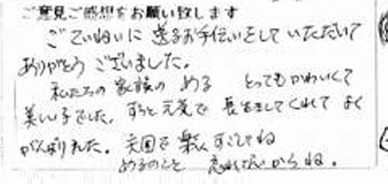 ご意見ご感想をお願い致します
ごていねいに 送るお手伝いをして いただいて
ありがとう ございました。
私たちの 家族の める とっても かわいくて
美しい子でした。ずっと元気で 長生きしてくれて よく
がんばりました。天国で 楽しくすごしてね
めるのこと 忘れないからね。